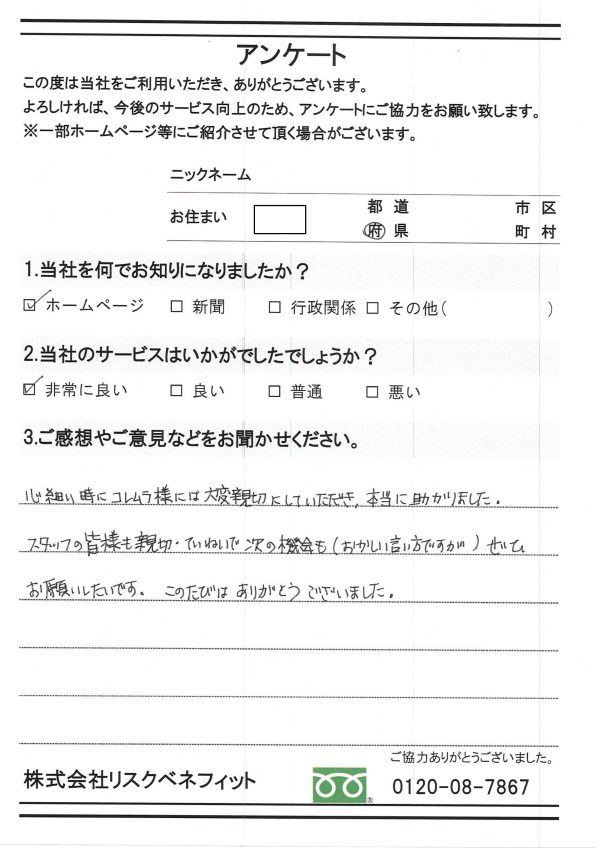 アンケート
この度は当社をご利用いただき、ありがとうございます。
よろしければ、今後のサービス向上のため、アンケートにご協力をお願い致します。
※一部ホームページ等にご紹介させて頂く場合がございます。
ニックネーム
お住まい 都 道 市 区
府 県 町 村
1.当社を何でお知りになりましたか？
☑ ホームページ □ 新聞 □ 行政関係 □ その他( )
2.当社のサービスはいかがでしたでしょうか？
☑ 非常に良い □ 良い □ 普通 □ 悪い
3.ご感想やご意見などをお聞かせください。
心細い時にコレムラ様には大変親切にしていただき、本当に助かりました。
スタッフの皆様も親切・ていねいで次の機会も(おかしい言い方ですが)ぜひ
お願いしたいです。 このたびはありがとうございました。
ご協力ありがとうございました。
株式会社リスクベネフィット 0120-08-7867